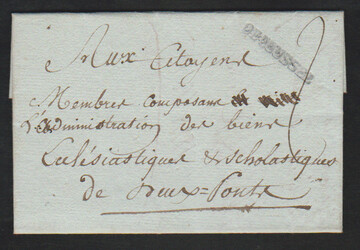 Aux Citoyens
Membres composans
l'administration des biens
Eclésiastiques & scholastiques
de Deux=Ponts